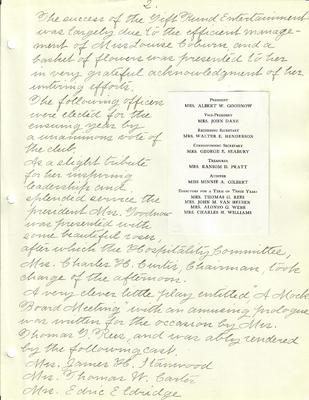 2.
The success of the Gift Fund Entertainment
was largely due to the efficient manage-
ment of Miss Louise Coburn and a
basket of flowers was presented to her
in very grateful acknowledgment of her
untiring efforts.
The following officers
were elected for the
ensuing year by
a unanimous vote of
the club.
As a slight tribute
for her inspiring
leadership and
splendid service the
president Mrs. Goodnow
was presented with
some beautiful roses,
after which the Hospitality Committee,
Mrs. Charles H. Curtis, Chairman, took
charge of the afternoon.
A very clever little play entitled "A Mock
Board Meeting" with an amusing prologue
was written for the occasion by Mrs.
Thomas G. Rees, and was ably rendered
by the following cast.
Mrs. James H. Stanwood
Mrs. Thomas W. Carter
Mrs. Edric Eldridge
President
MRS. ALBERT W. GOODNOW
Vice-President
MRS. JOHN DANE
Recording Secretary
MRS. WALTER E. HENDERSON
Corresponding Secretary
MRS. GEORGE E. SEABURY
Treasurer
MRS. RANSOM D. PRATT
Auditor
MISS MINNIE A. GILBERT
Directors for a Term of Three Years
MRS. THOMAS G. REES
MRS. JOHN M. VAN HEUSEN
MRS. ALONZO G. WEBB
MRS. CHARLES H. WILLIAMS